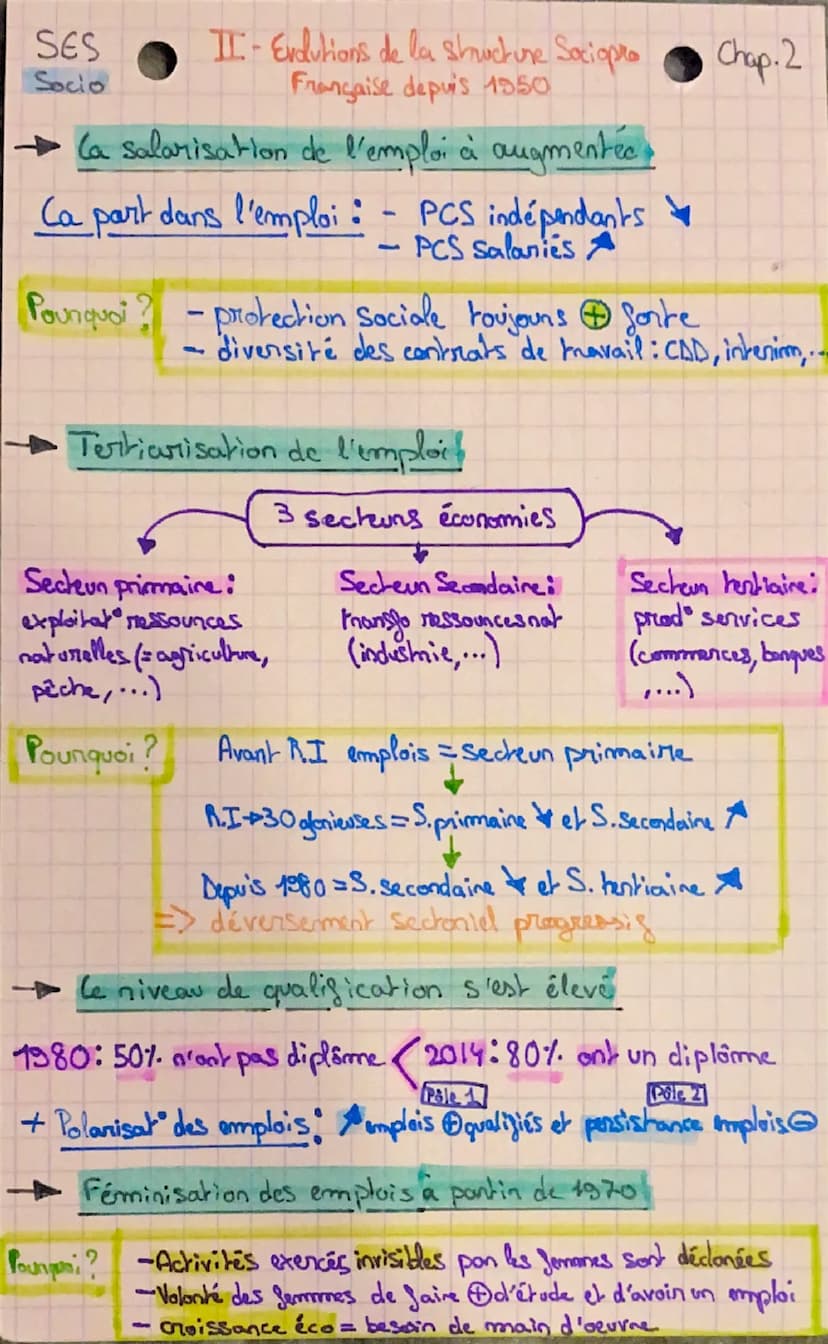 SES
Socio
II - Evolutions de la structure Sociopro
Française depuis 1950
Chap. 2
→ La salarisation de l'emploi à augmentée
La part dans l'emploi : - PCS indépendants ↘
- PCS salariés ↗
Pourquoi ?
- protection sociale toujours ⊕ forte
- diversité des contrats de travail : CDD, interim, ...
→ Tertiarisation de l'emploi
3 secteurs économies
Secteur primaire :
exploitat° ressources
naturelles (= agriculture,
pêche, ...)
Secteur Secondaire :
transfo ressources nat
(industrie, ...)
Secteur tertiaire :
prod° services
(commerces, banques
, ...)
Pourquoi ?
Avant R.I emplois = secteur primaire
↓
R.I → 30 glorieuses = S. primaire ↘ et S. secondaire ↗
↓
Depuis 1980 = S. secondaire ↘ et S. tertiaire ↗
=> déversement sectoriel progressif
→ Le niveau de qualification s'est élevé
1980 : 50% n'ont pas diplôme < 2014 : 80% ont un diplôme
Pôle 1
Pôle 2
+ Polarisat° des emplois : ↗ emplois ⊕ qualifiés et persistance emplois ⊖
→ Féminisation des emplois à partir de 1970
Pourquoi ?
- Activités exercés invisibles par les femmes sont déclarées
- Volonté des femmes de faire ⊕ d'étude et d'avoir un emploi
- croissance éco = besoin de main d'oeuvre